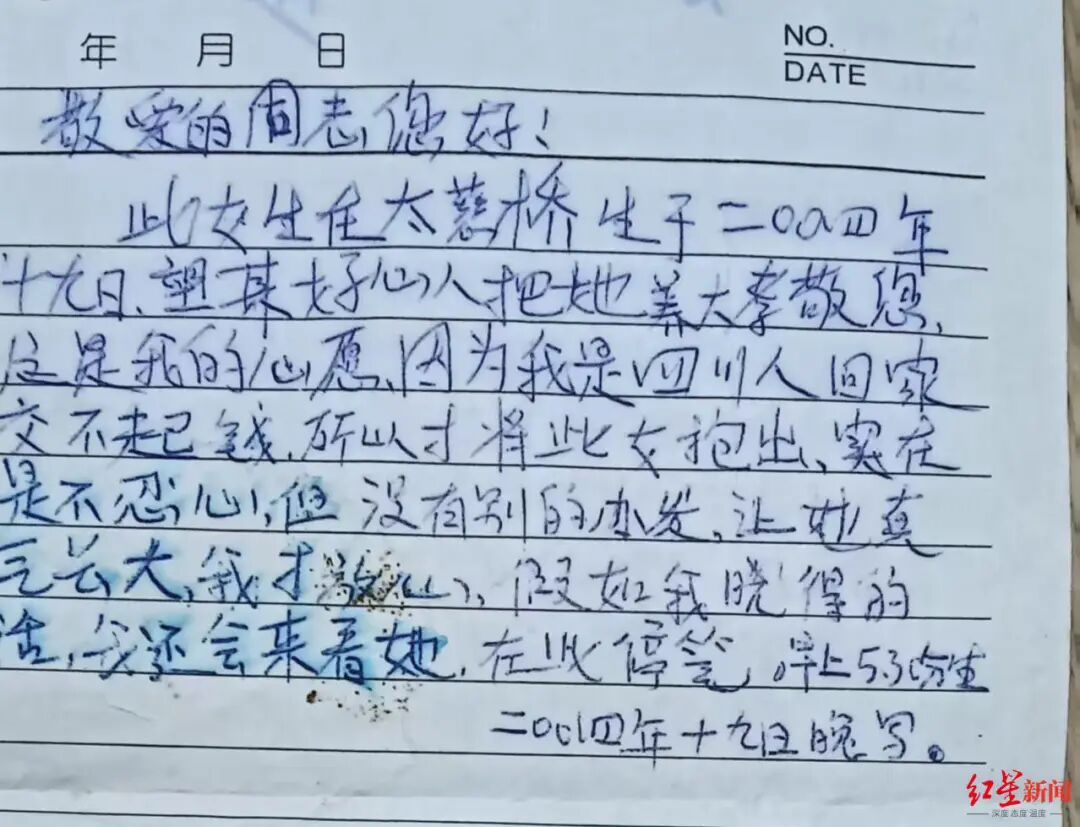 年 月 日
NO.
DATE
敬爱的同志您好！
此女生在太慈桥生于二〇〇四年
十九日、望某好心人把她养大孝敬您、
这是我的心愿、因为我是四川人回家
交不起钱、所以才将此女抱出、实在
是不忍心、但没有别的办发、让她真
长大、我才放心、假如我晓得的
话、我还会来看她、在此停笔、早上5.30分生
二〇〇四年十九日晚写。
红星新闻
深度 态度 温度